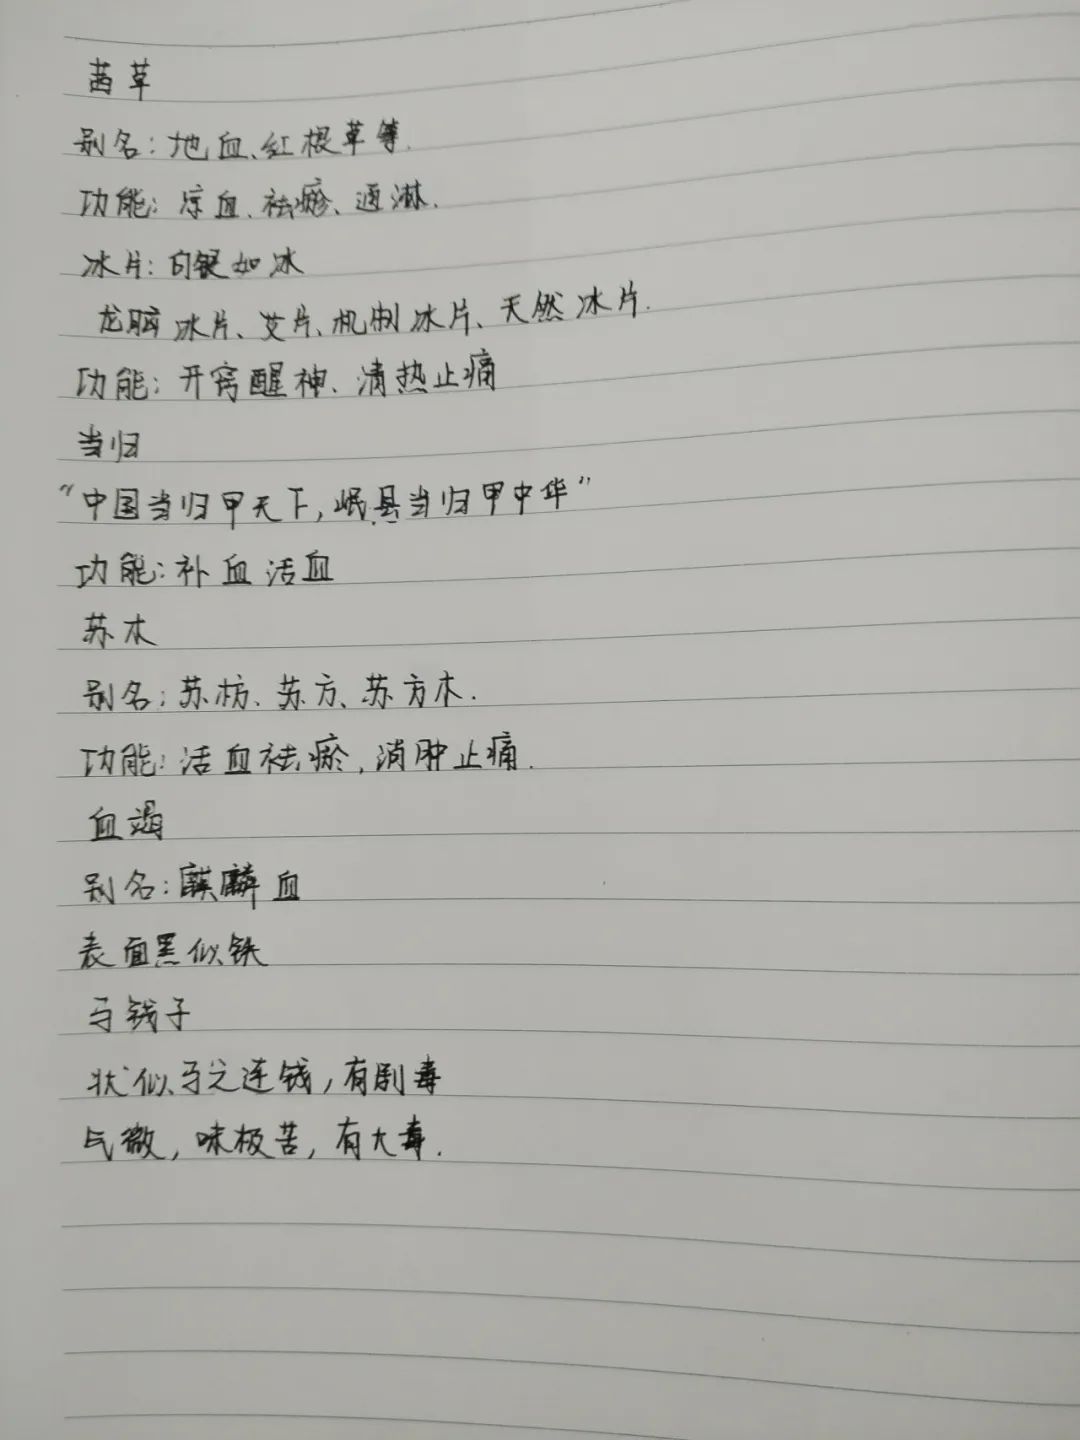 茜草
别名：地血、红根草等.
功能：凉血、祛瘀、通淋.
冰片：白银如冰
龙脑冰片、艾片、机制冰片、天然冰片.
功能：开窍醒神、清热止痛
当归
“中国当归甲天下，岷县当归甲中华”
功能：补血活血
苏木
别名：苏枋、苏方、苏方木.
功能：活血祛瘀，消肿止痛.
血竭
别名：麒麟血
表面黑似铁
马钱子
状似马之连钱，有剧毒
气微，味极苦，有大毒.